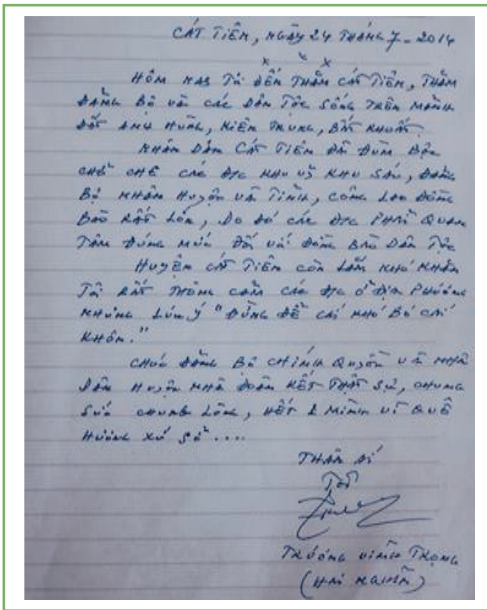 CÁT TIÊN, NGÀY 24 THÁNG 7-2014
x x x
HÔM NAY TÔI ĐẾN THĂM CÁT TIÊN, THĂM
ĐẢNG BỘ VÀ CÁC DÂN TỘC SỐNG TRÊN MẢNH
ĐẤT ANH HÙNG, KIÊN TRUNG, BẤT KHUẤT.
NHÂN DÂN CÁT TIÊN ĐÃ ĐÙM BỌC
CHE CHỞ CÁC Đ/C KHU UỶ KHU SÁU, ĐẢNG
BỘ NHÂN HUYỆN VÀ TỈNH, CÔNG LAO ĐỒNG
BÀO RẤT LỚN, DO ĐÓ CÁC Đ/C PHẢI QUAN
TÂM ĐÚNG MỨC ĐỐI VỚI ĐỒNG BÀO DÂN TỘC
HUYỆN CÁT TIÊN CÒN LẮM KHÓ KHĂN
TÔI RẤT THÔNG CẢM CÁC Đ/C Ở ĐỊA PHƯƠNG
NHƯNG LƯU Ý "ĐỪNG ĐỂ CÁI KHÓ BÓ CÁI
KHÔN."
CHÚC ĐẢNG BỘ CHÍNH QUYỀN VÀ NHÂN
DÂN HUYỆN NHÀ ĐOÀN KẾT THẬT SỰ, CHUNG
SỨC CHUNG LÒNG, HẾT MÌNH VÌ QUÊ
HƯƠNG XỨ SỞ....
THÂN ÁI
TÔI
TRƯƠNG VĨNH TRỌNG
(HAI NGHĨA)